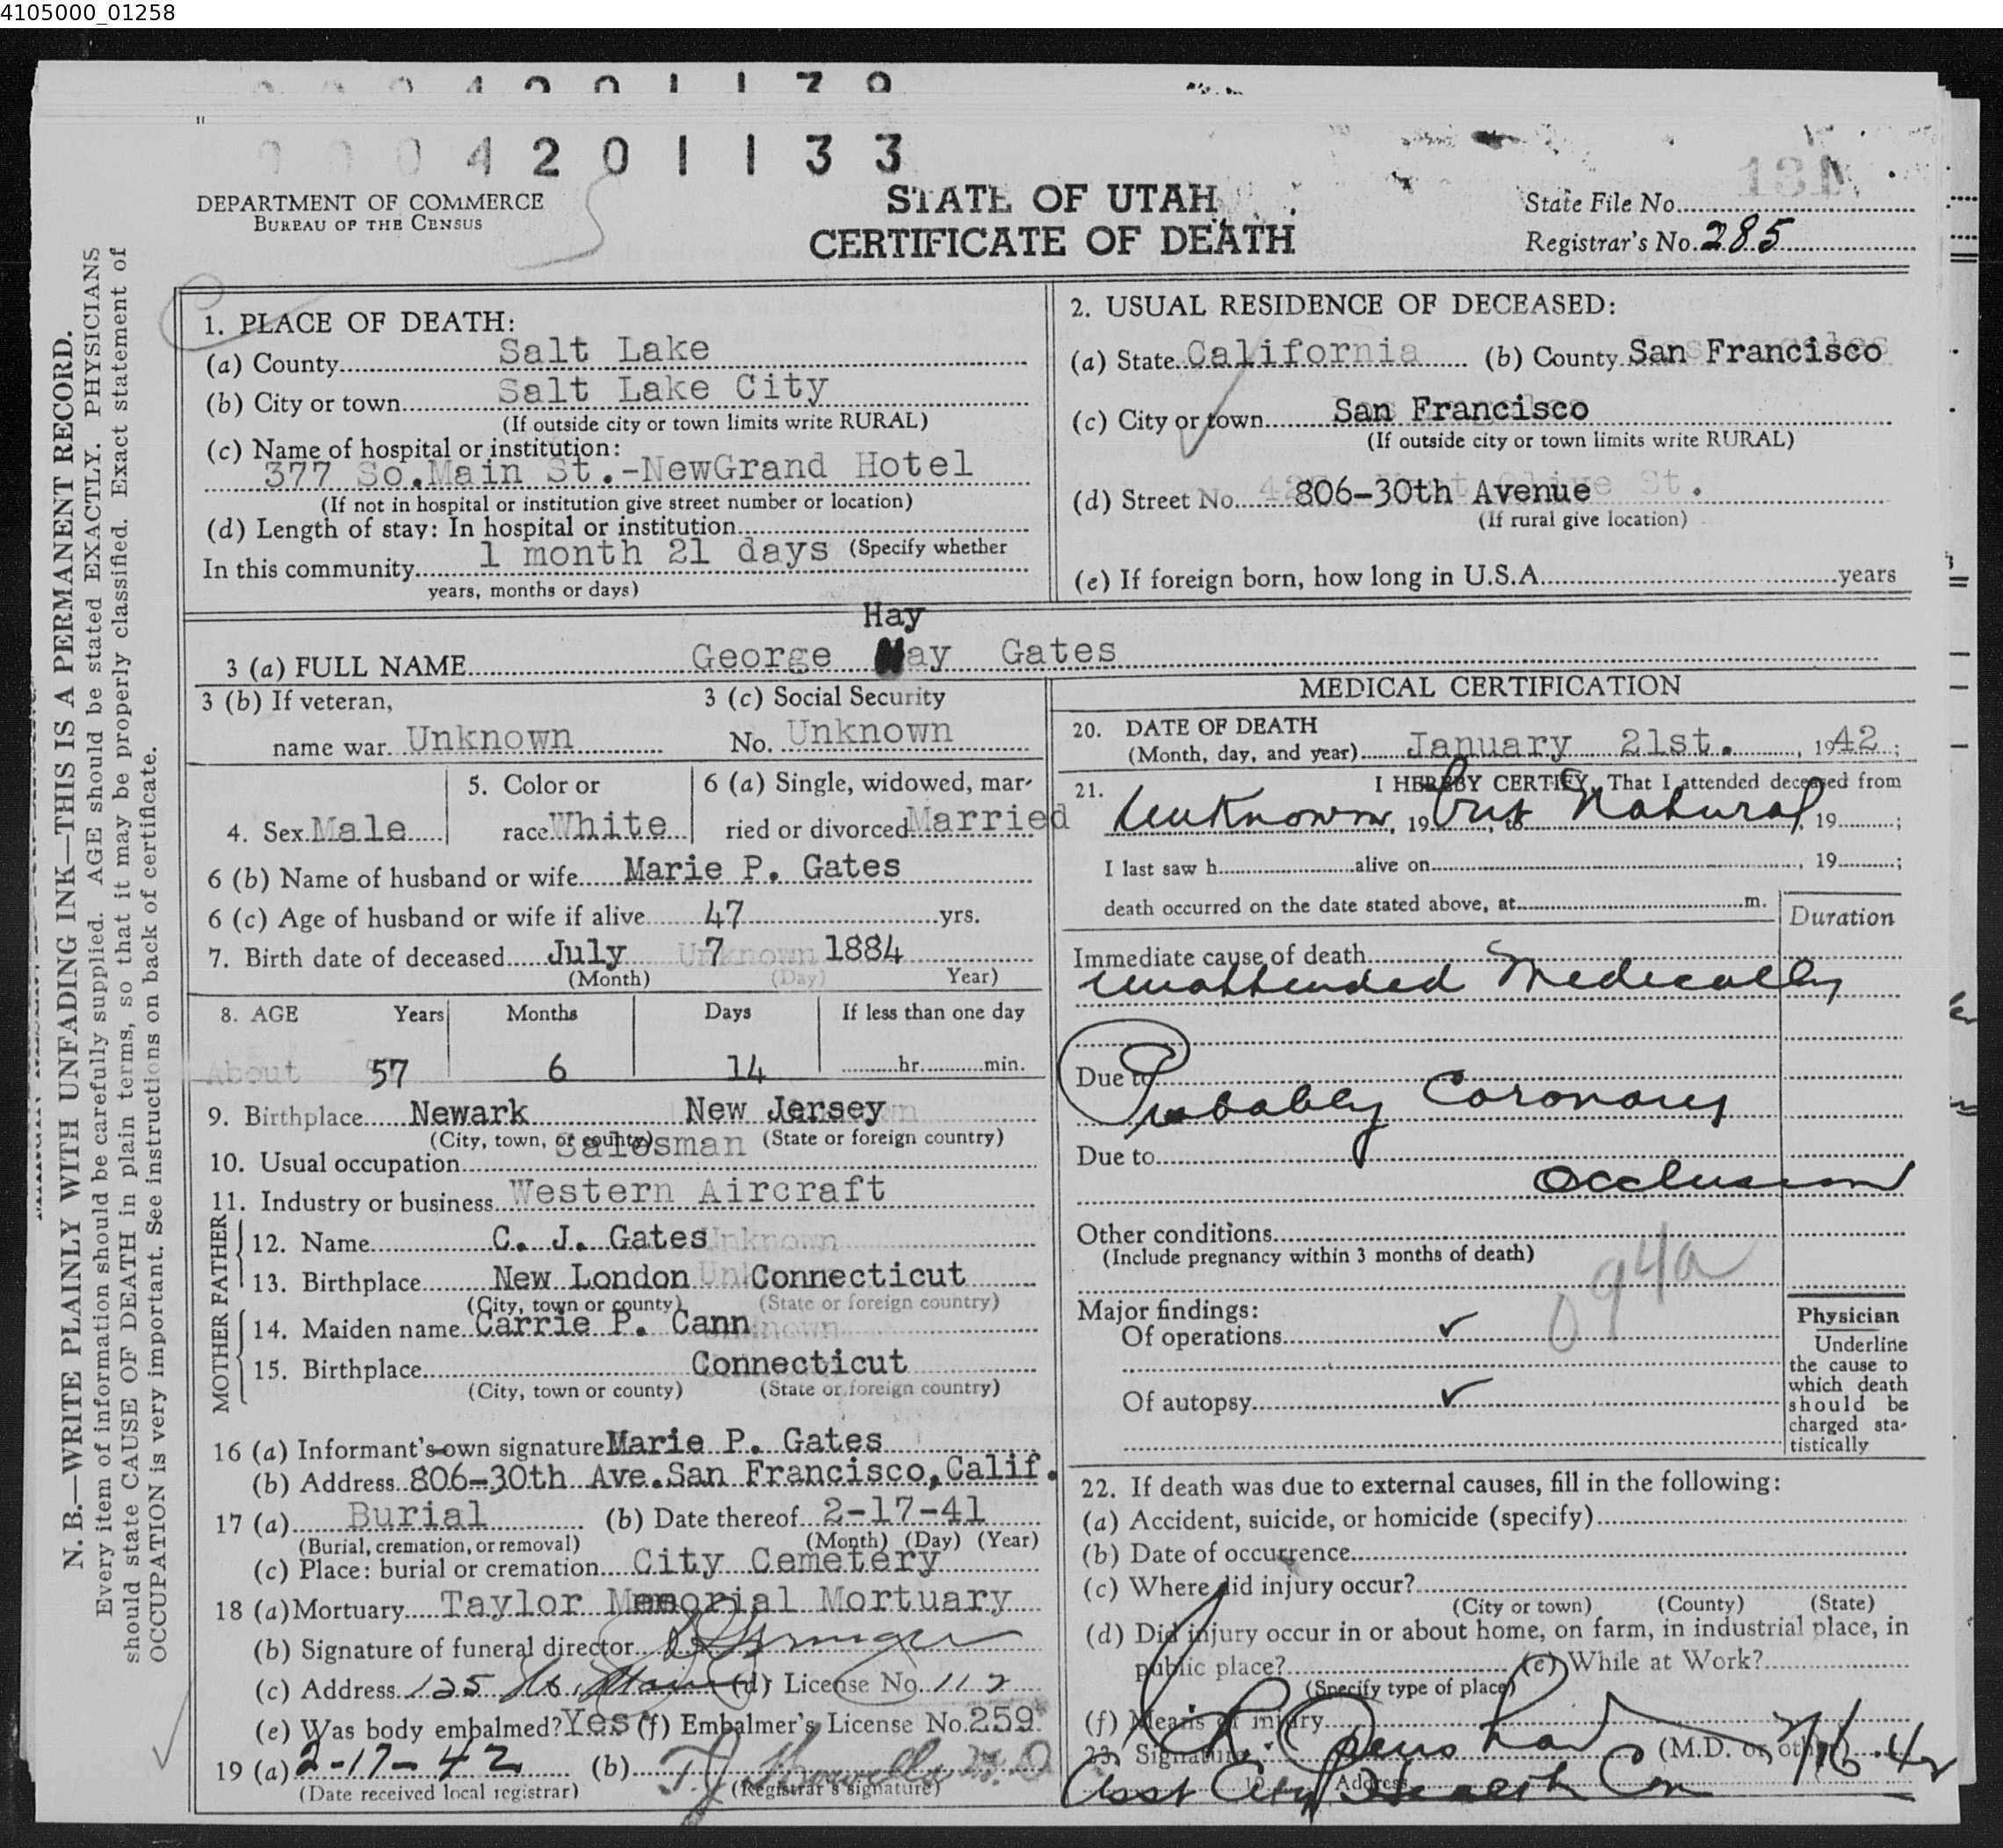 4105000_01258
4 2 0 1 1 3 3
DEPARTMENT OF COMMERCE
BUREAU OF THE CENSUS
STATE OF UTAH
CERTIFICATE OF DEATH
State File No.
Registrar's No. 285
N. B.—WRITE PLAINLY WITH UNFADING INK—THIS IS A PERMANENT RECORD.
Every item of information should be carefully supplied. AGE should be stated EXACTLY. PHYSICIANS
should state CAUSE OF DEATH in plain terms, so that it may be properly classified. Exact statement of
OCCUPATION is very important. See instructions on back of certificate.
1. PLACE OF DEATH:
(a) County Salt Lake
(b) City or town Salt Lake City
(If outside city or town limits write RURAL)
(c) Name of hospital or institution:
377 So.Main St.-NewGrand Hotel
(If not in hospital or institution give street number or location)
(d) Length of stay: In hospital or institution
In this community 1 month 21 days (Specify whether
years, months or days)
2. USUAL RESIDENCE OF DECEASED:
(a) State California (b) County San Francisco
(c) City or town San Francisco
(If outside city or town limits write RURAL)
(d) Street No. 806-30th Avenue
(If rural give location)
(e) If foreign born, how long in U.S.A. years
Hay
3 (a) FULL NAME George Hay Gates
3 (b) If veteran, 3 (c) Social Security
name war Unknown No. Unknown
4. Sex Male 5. Color or race White 6 (a) Single, widowed, married or divorced Married
6 (b) Name of husband or wife Marie P. Gates
6 (c) Age of husband or wife if alive 47 yrs.
7. Birth date of deceased July 7 1884
(Month) (Day) Year)
8. AGE Years Months Days If less than one day
About 57 6 14 hr. min.
9. Birthplace Newark New Jersey
(City, town, or county) (State or foreign country)
10. Usual occupation Salesman
11. Industry or business Western Aircraft
FATHER
12. Name C. J. Gates Unknown
13. Birthplace New London Connecticut
(City, town or county) (State or foreign country)
MOTHER
14. Maiden name Carrie P. Cann
15. Birthplace Connecticut
(City, town or county) (State or foreign country)
16 (a) Informant's own signature Marie P. Gates
(b) Address 806-30th Ave. San Francisco, Calif.
17 (a) Burial (b) Date thereof 2-17-41
(Burial, cremation, or removal) (Month) (Day) (Year)
(c) Place: burial or cremation City Cemetery
18 (a) Mortuary Taylor Memorial Mortuary
(b) Signature of funeral director
(c) Address 125 No. Main (d) License No. 112
(e) Was body embalmed? Yes (f) Embalmer's License No. 259
19 (a) 2-17-42 (b)
(Date received local registrar) (Registrar's signature)
MEDICAL CERTIFICATION
20. DATE OF DEATH
(Month, day, and year) January 21st. , 1942;
21. I HEREBY CERTIFY, That I attended deceased from
Unknown, 19 but Natural, 19 ;
I last saw h alive on , 19 ;
death occurred on the date stated above, at m.
Duration
Immediate cause of death
Unattended Medically
Due to
Probably Coronary
Due to
Occlusion
Other conditions
(Include pregnancy within 3 months of death)
094a
Major findings:
Of operations ✓
Of autopsy ✓
Physician
Underline
the cause to
which death
should be
charged sta-
tistically
22. If death was due to external causes, fill in the following:
(a) Accident, suicide, or homicide (specify)
(b) Date of occurrence
(c) Where did injury occur?
(City or town) (County) (State)
(d) Did injury occur in or about home, on farm, in industrial place, in
public place? (e) While at Work?
(Specify type of place)
(f) Means of injury
23. Signature (M.D. or other) 2/16-42
Asst City Health Address